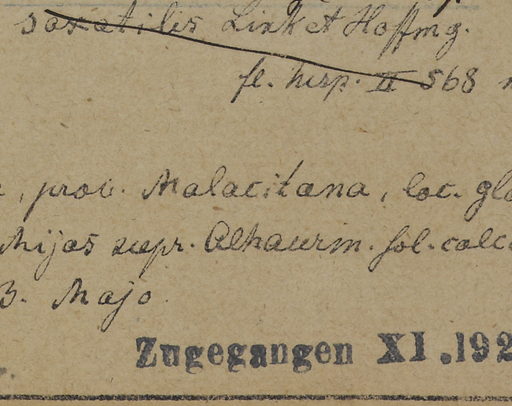 saxatilis Link et Hoffmg.
fl. hisp. II 568
, prov. Malacitana, loc. gla
Mijas supr. Alhaurin. sol. calc
3. Majo.
Zugegangen XI.192